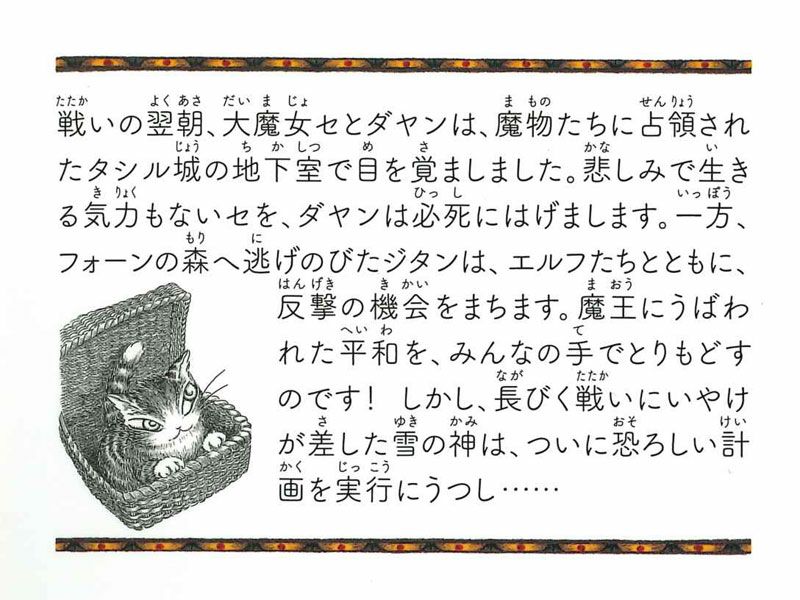 戦いの翌朝、大魔女セとダヤンは、魔物たちに占領され
たタシル城の地下室で目を覚ましました。悲しみで生き
る気力もないセを、ダヤンは必死にはげまします。一方、
フォーンの森へ逃げのびたジタンは、エルフたちとともに、
反撃の機会をまちます。魔王にうばわ
れた平和を、みんなの手でとりもどす
のです！ しかし、長びく戦いにいやけ
が差した雪の神は、ついに恐ろしい計
画を実行にうつし……